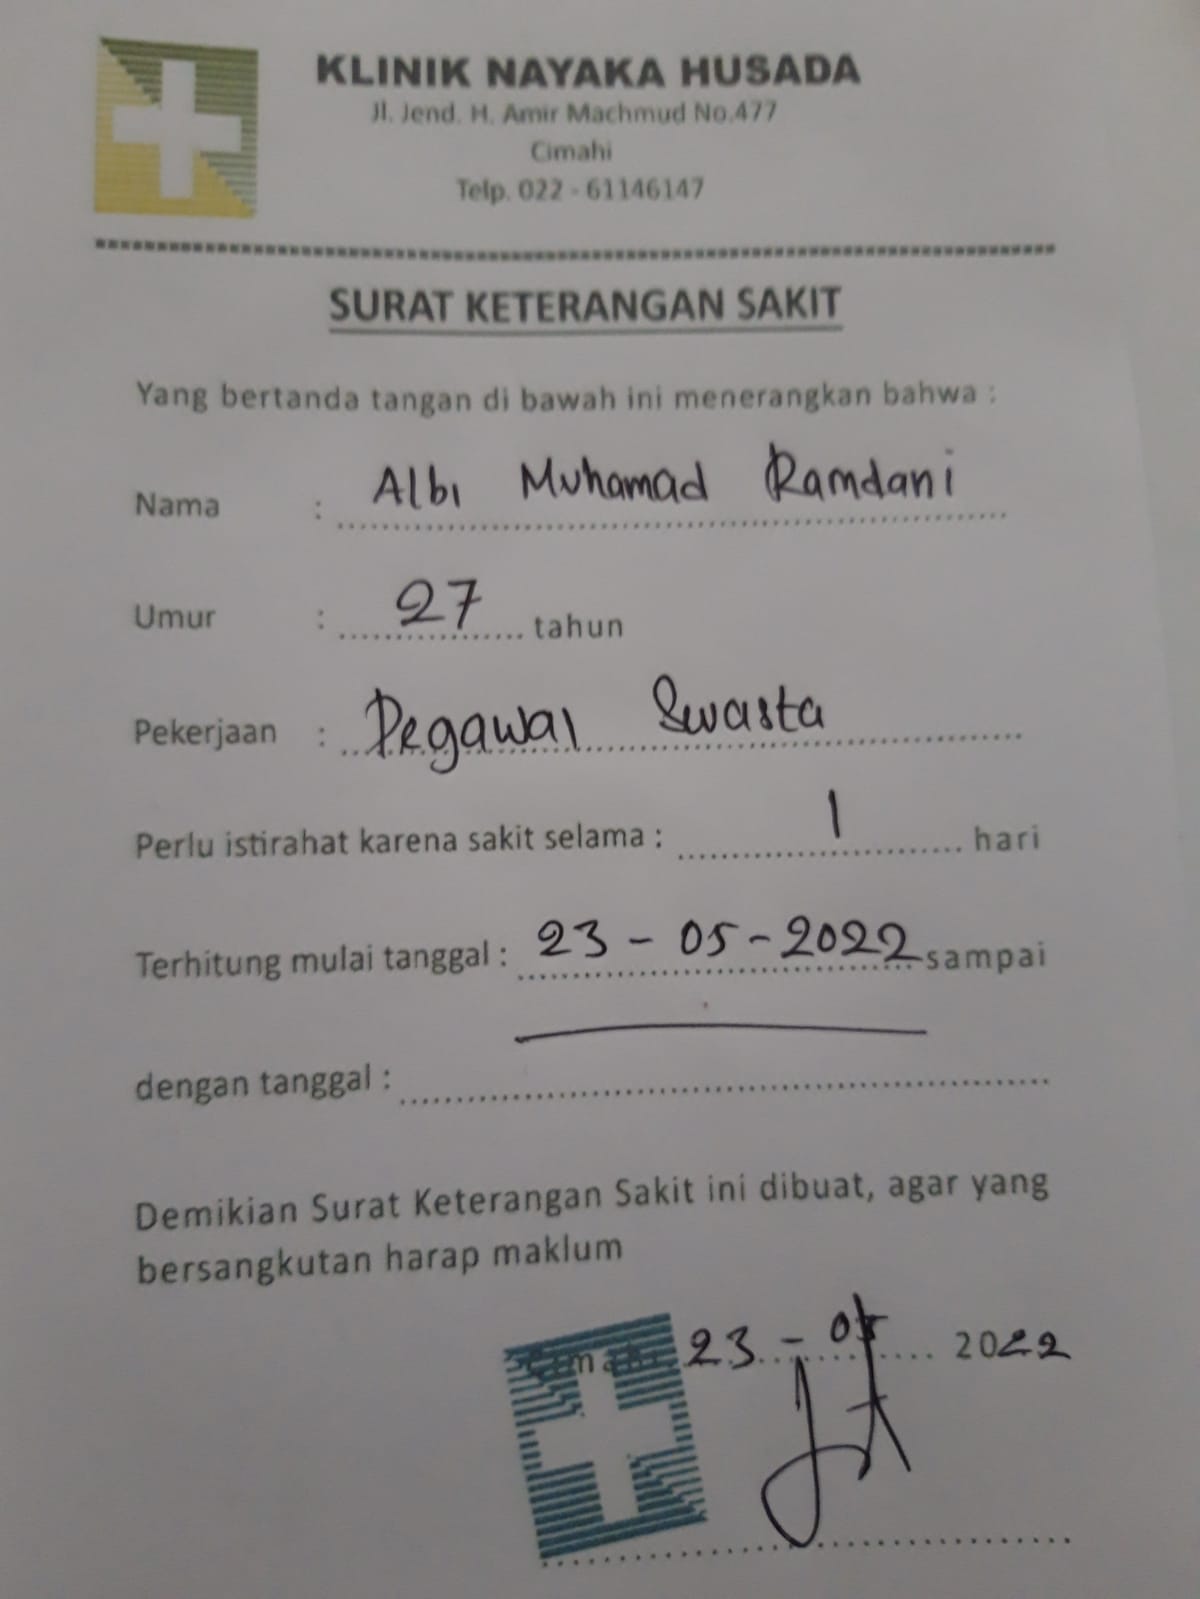 KLINIK NAYAKA HUSADA
Jl. Jend. H. Amir Machmud No.477
Cimahi
Telp. 022 - 61146147
SURAT KETERANGAN SAKIT
Yang bertanda tangan di bawah ini menerangkan bahwa :
Nama : Albi Muhamad Ramdani
Umur : 27 tahun
Pekerjaan : Pegawai Swasta
Perlu istirahat karena sakit selama : 1 hari
Terhitung mulai tanggal : 23 - 05 - 2022 sampai
dengan tanggal :
Demikian Surat Keterangan Sakit ini dibuat, agar yang
bersangkutan harap maklum
Cimahi, 23 - 05 2022